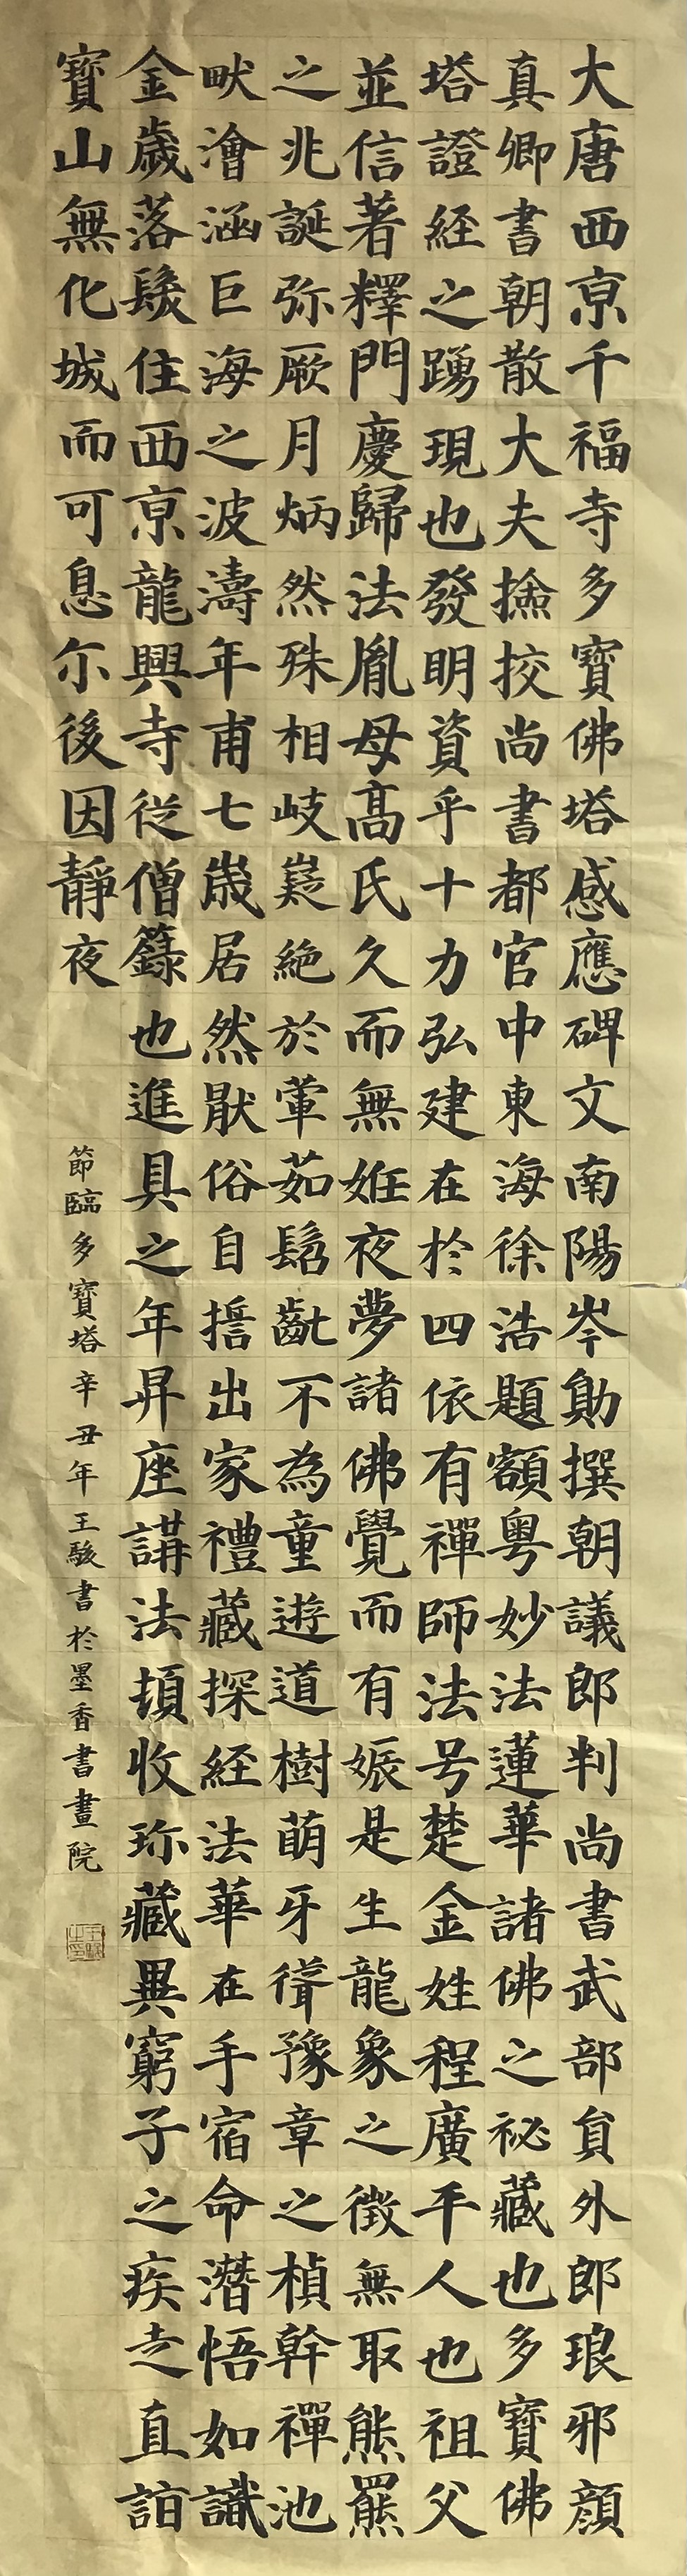 大唐西京千福寺多寶佛塔感應碑文南陽岑勛撰朝議郎判尚書武部貟外郎琅邪顏
真卿書朝散大夫撿挍尚書都官中東海徐浩題額粤妙法蓮華諸佛之祕藏也多寶佛
塔證経之踴現也發明資乎十力弘建在於四依有禪師法号楚金姓程廣平人也祖父
並信著釋門慶歸法胤母高氏久而無姙夜夢諸佛覺而有娠是生龍象之徵無取熊羆
之兆誕弥厥月炳然殊相岐嶷絶於葷茹髫齔不為童遊道樹萌牙聳豫章之楨幹禪池
畎澮涵巨海之波濤年甫七歲居然猒俗自誓出家禮藏探経法華在手宿命潛悟如識
金歲落髮住西京龍興寺從僧籙也進具之年昇座講法頓收珎藏異窮子之疾走直詣
寶山無化城而可息尒後因靜夜
節臨多寶塔辛丑年王駿書於墨香書畫院